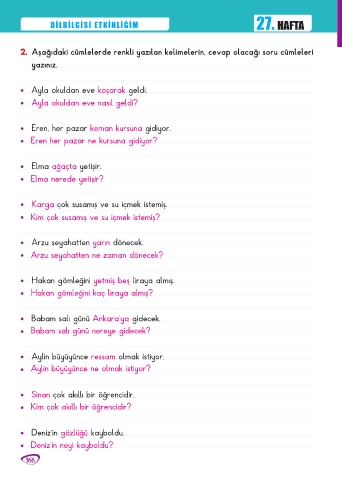 DİLBİLGİSİ ETKİNLİĞİM
27. HAFTA
2. Aşağıdaki cümlelerde renkli yazılan kelimelerin, cevap olacağı soru cümleleri
yazınız.
• Ayla okuldan eve koşarak geldi.
• Ayla okuldan eve nasıl geldi?
• Eren, her pazar keman kursuna gidiyor.
• Eren her pazar ne kursuna gidiyor?
• Elma ağaçta yetişir.
• Elma nerede yetişir?
• Karga çok susamış ve su içmek istemiş.
• Kim çok susamış ve su içmek istemiş?
• Arzu seyahatten yarın dönecek.
• Arzu seyahatten ne zaman dönecek?
• Hakan gömleğini yetmiş beş liraya almış.
• Hakan gömleğini kaç liraya almış?
• Babam salı günü Ankara'ya gidecek.
• Babam salı günü nereye gidecek?
• Aylin büyüyünce ressam olmak istiyor.
• Aylin büyüyünce ne olmak istiyor?
• Sinan çok akıllı bir öğrencidir.
• Kim çok akıllı bir öğrencidir?
• Deniz'in gözlüğü kayboldu.
• Deniz'in neyi kayboldu?
166